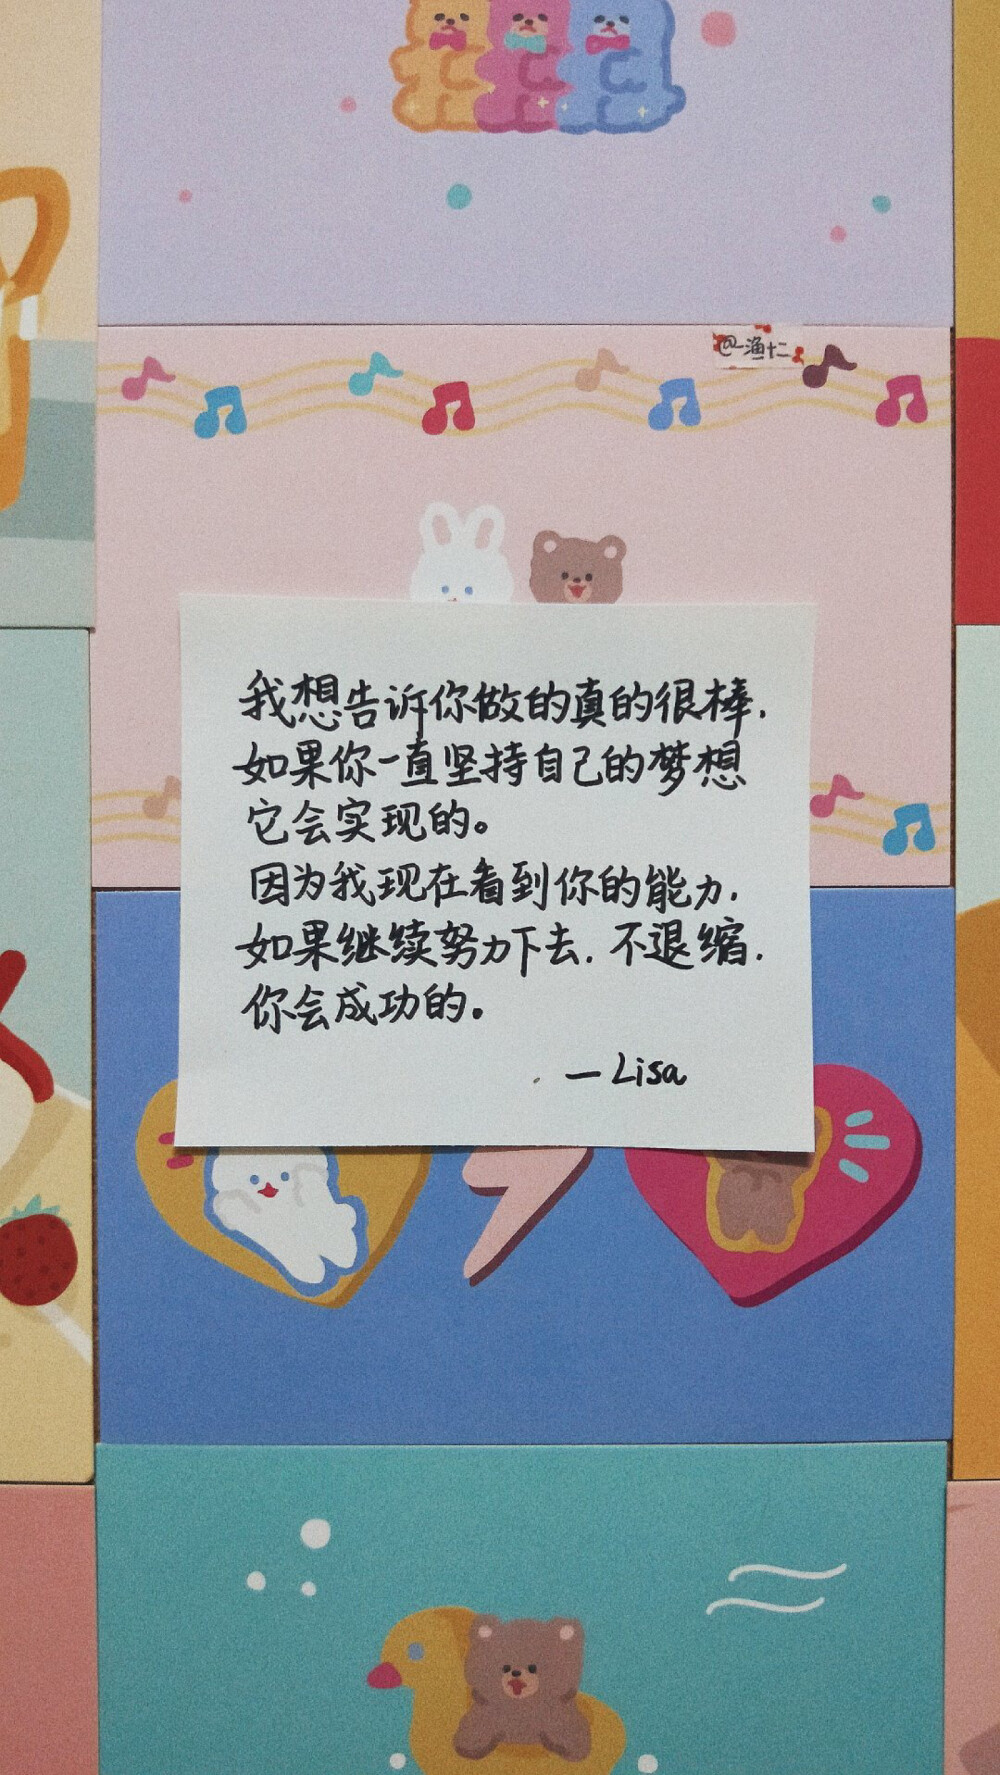 @一渔十二
我想告诉你做的真的很棒,
如果你一直坚持自己的梦想
它会实现的。
因为我现在看到你的能力,
如果继续努力下去,不退缩,
你会成功的。
—Lisa